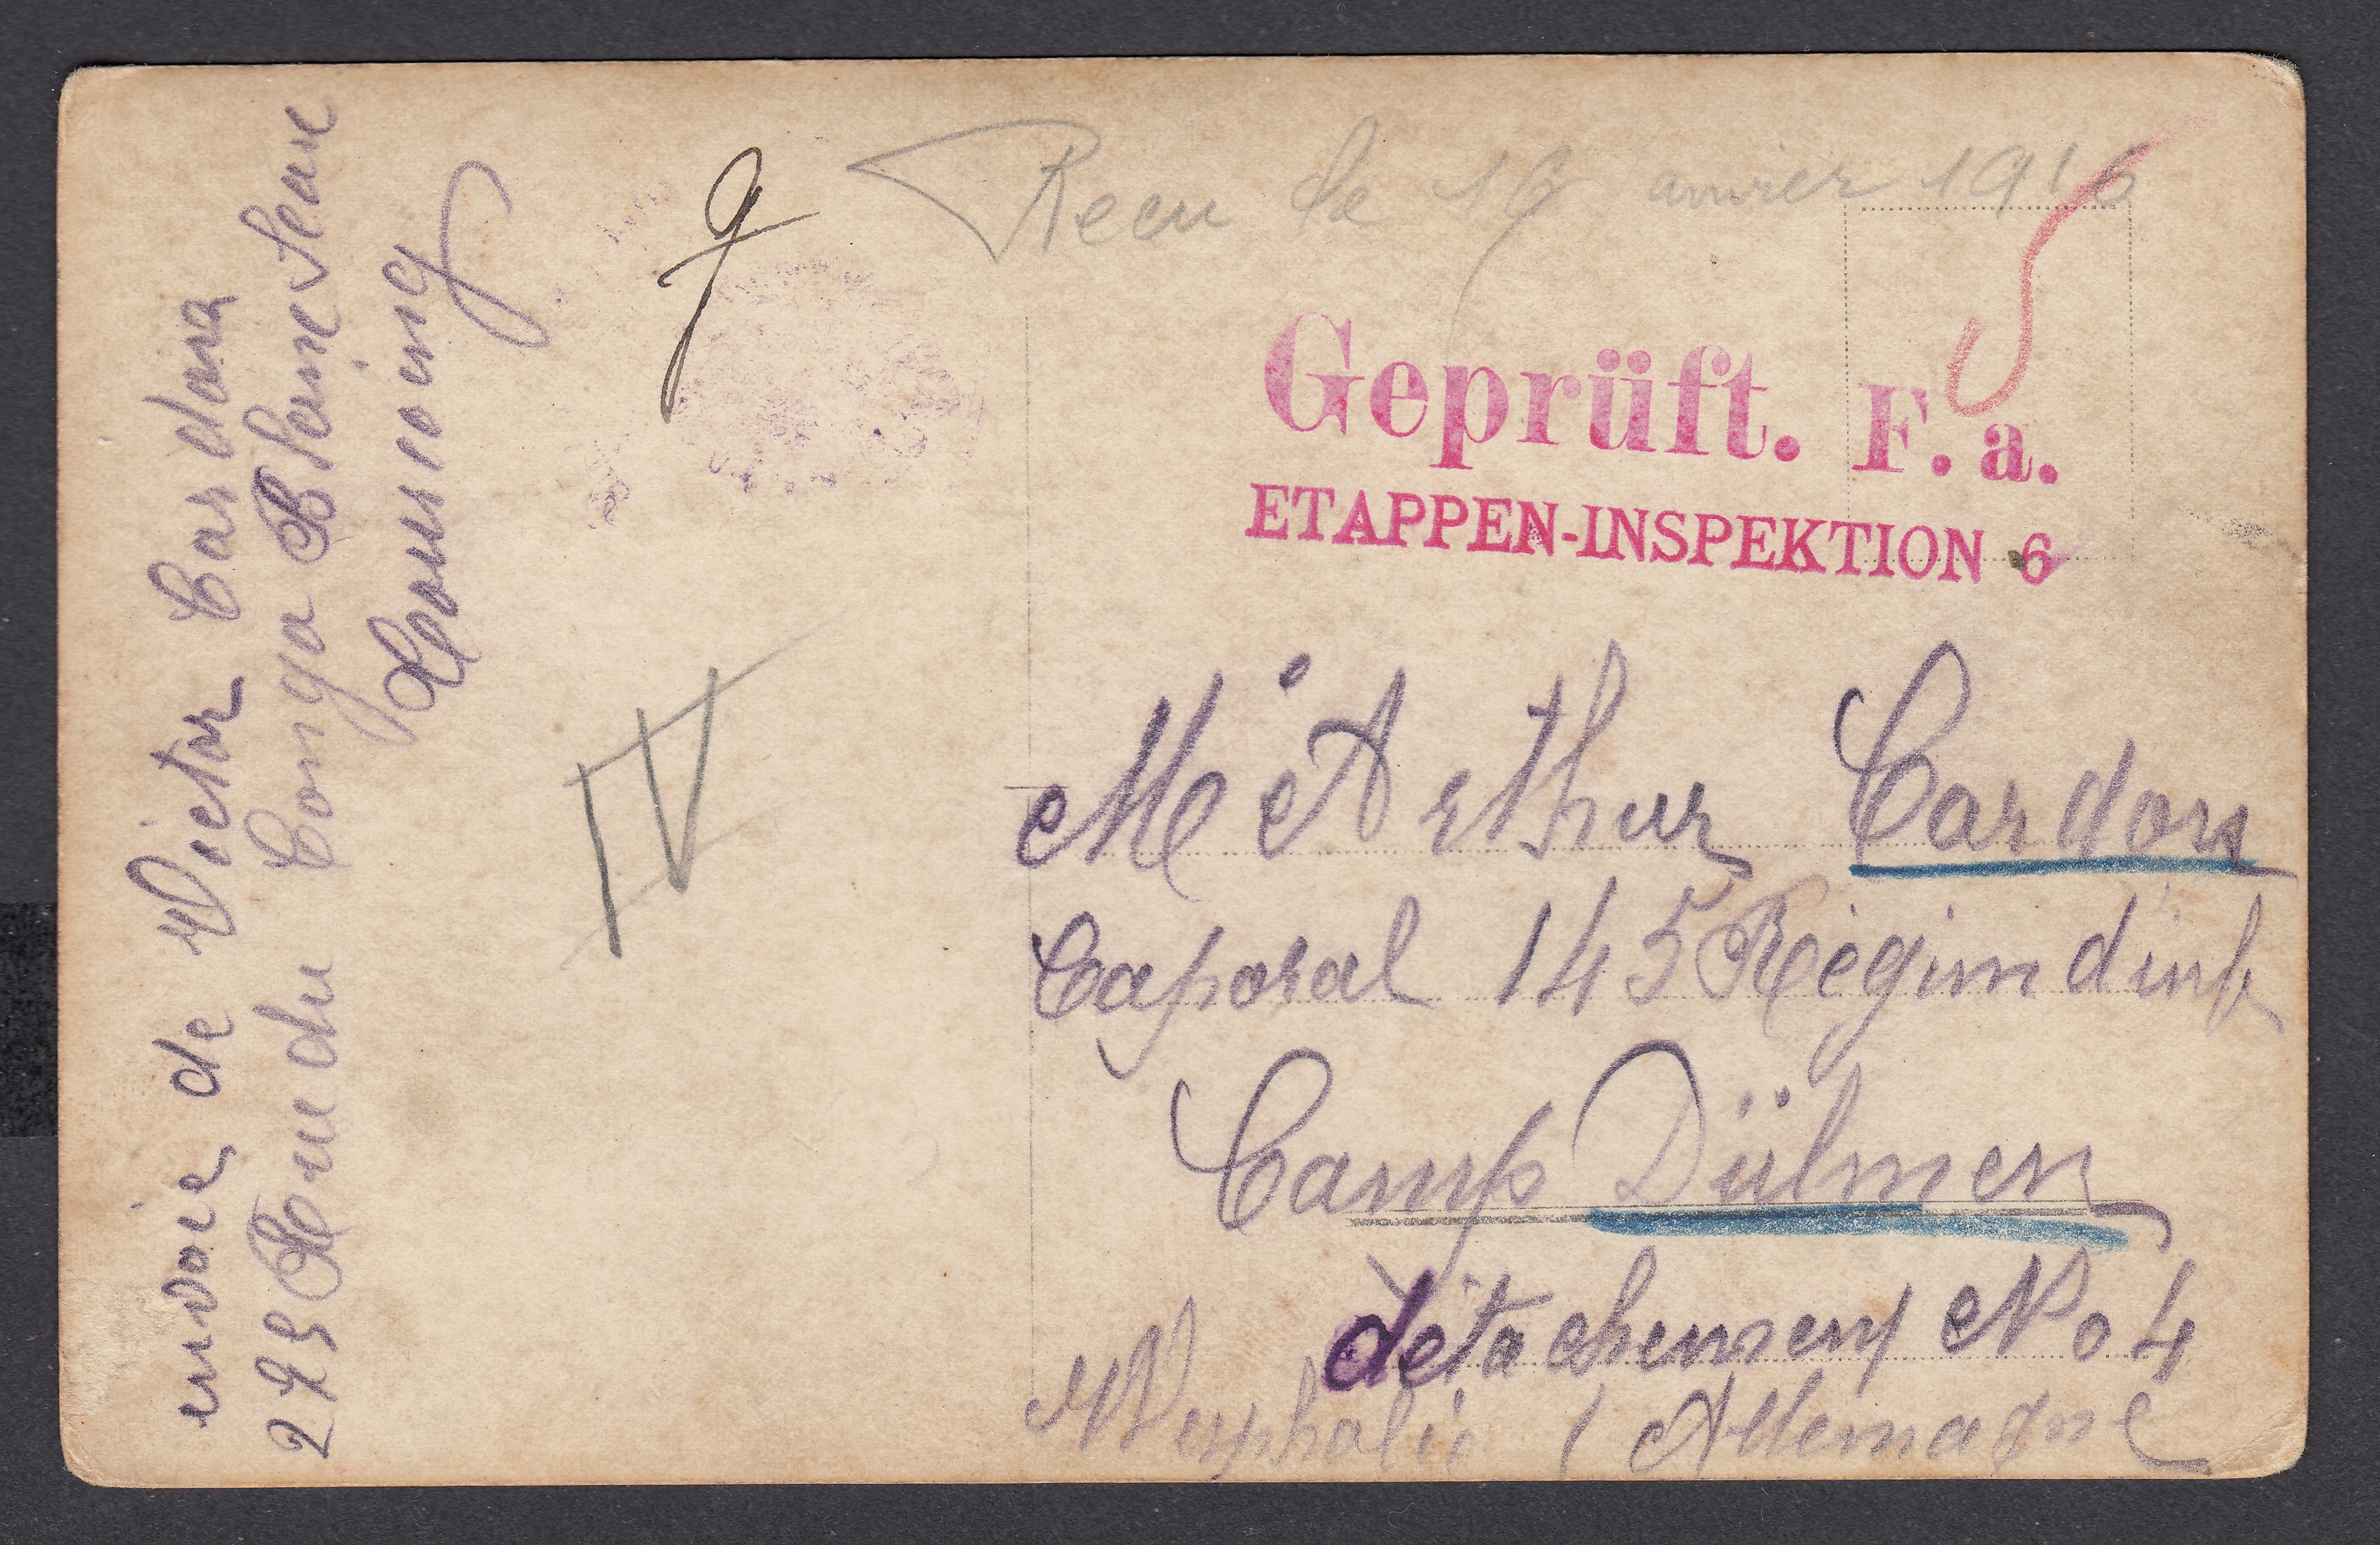 envoie de Victor Cardon
279 Rue du Congo
Tourcoing
Recu le 16 anvier 1916
Geprüft. F. a.
ETAPPEN-INSPEKTION 6
IV
Mr Arthur Cardon
Caporal 145 Régim d inf
Camp Dülmen
détachement No 4
Wesphalie Allemagne